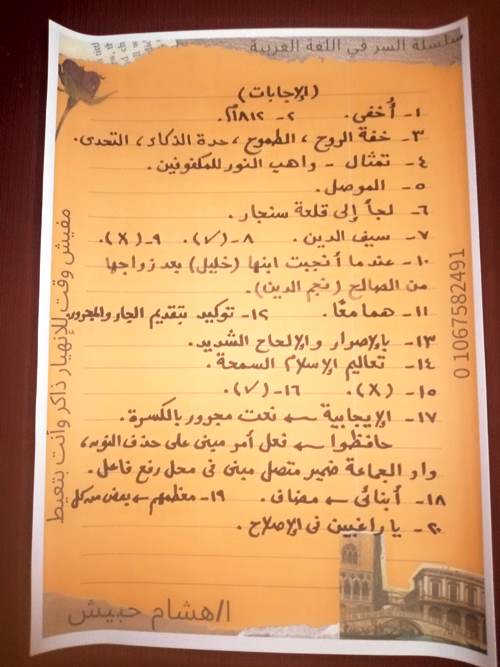 سلسلة السر في اللغة العربية
(الإجابات)
١- أُخفى. ٢- ١٨١٢م.
٣- خفة الروح، الطموح، حدة الذكاء، التحدى.
٤- تمثال - واهب النور للمكفوفين.
٥- الموصل.
٦- لجأ إلى قلعة سنجار.
٧- سيف الدين. ٨- (✓). ٩- (X).
١٠- عندما أنجبت ابنها (خليل) بعد زواجها
من الصالح (نجم الدين).
١١- هما معًا. ١٢- توكيد بتقديم الجار والمجرور
١٣- بالإصرار والإلحاح الشديد.
١٤- تعاليم الإسلام السمحة.
١٥- (X). ١٦- (✓).
١٧- الإيجابية ← نعت مجرور بالكسرة.
حافظوا ← فعل أمر مبنى على حذف النون،
واو الجماعة ضمير متصل مبنى فى محل رفع فاعل.
١٨- أبنائى ← مضاف. ١٩- معظمهم ← بعض من كل
٢٠- يا راغبين فى الإصلاح.
أ/هشام حبيش
مفيش وقت للإنهيار ذاكر وأنت بتعيط
0 1067582491